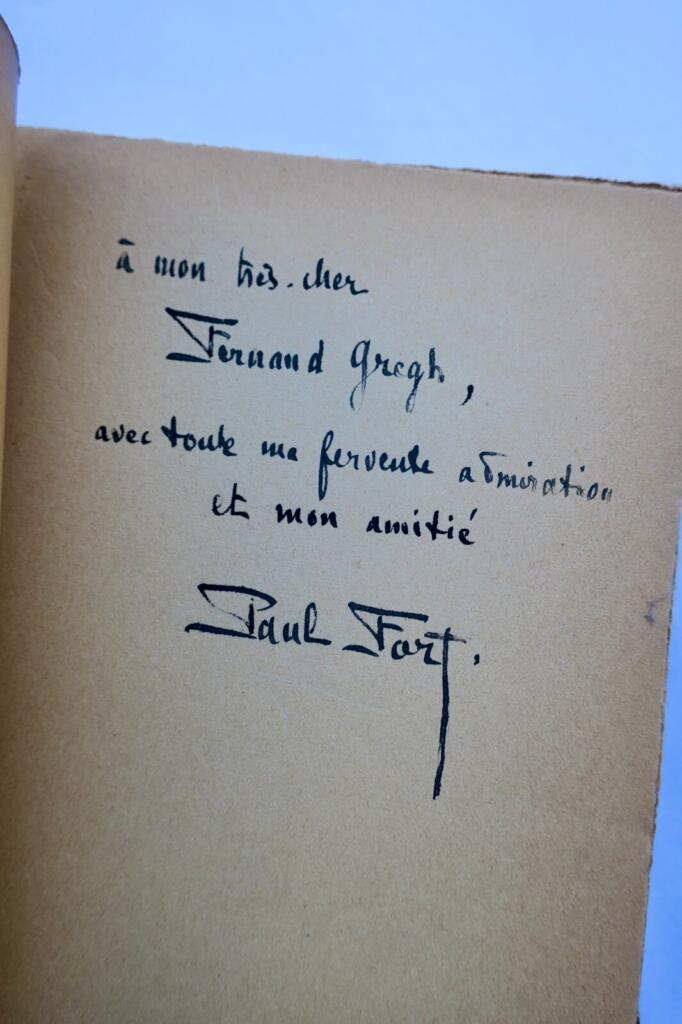 à mon très-cher
Fernand Gregh,
avec toute ma fervente admiration
et mon amitié
Paul Fort.